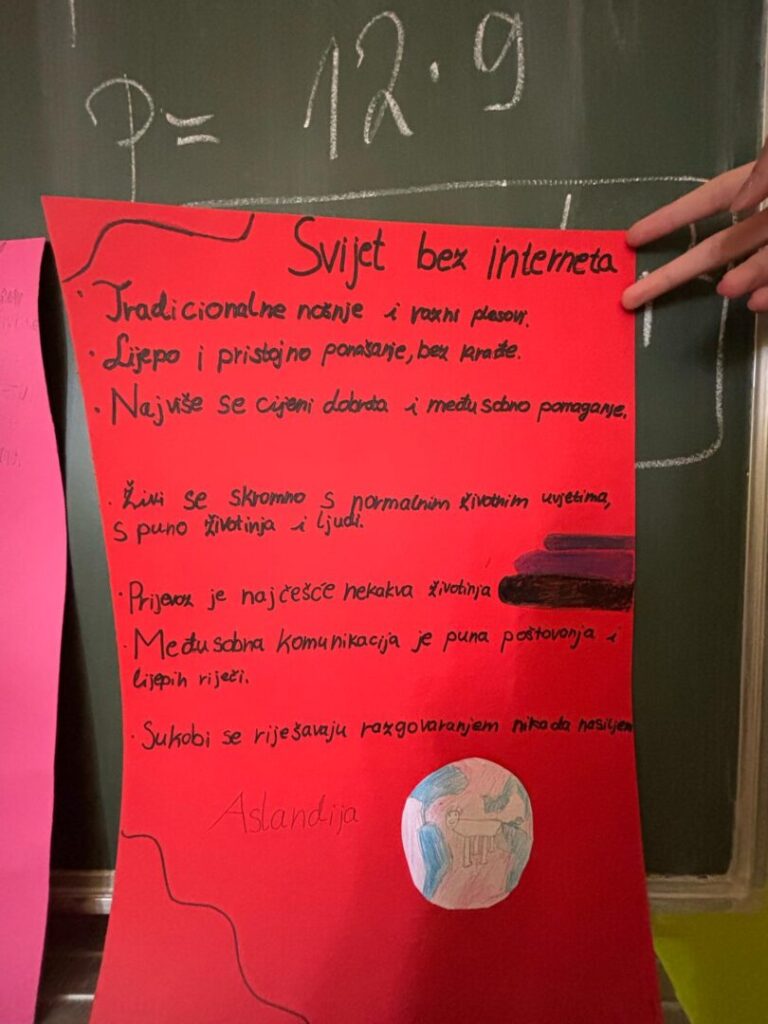 P = 12 · 9
Svijet bez interneta
· Tradicionalne nošnje i razni plesovi.
· Lijepo i pristojno ponašanje, bez krađe.
· Najviše se cijeni dobrota i među sobno pomaganje.
· Živi se skromno s normalnim životnim uvjetima,
s puno životinja i ljudi.
· Prijevoz je najčešće nekakva životinja
· Među sobna komunikacija je puna poštovanja i
lijepih riječi.
· Sukobi se riješavaju razgovaranjem nikada nasiljem
Aslandija